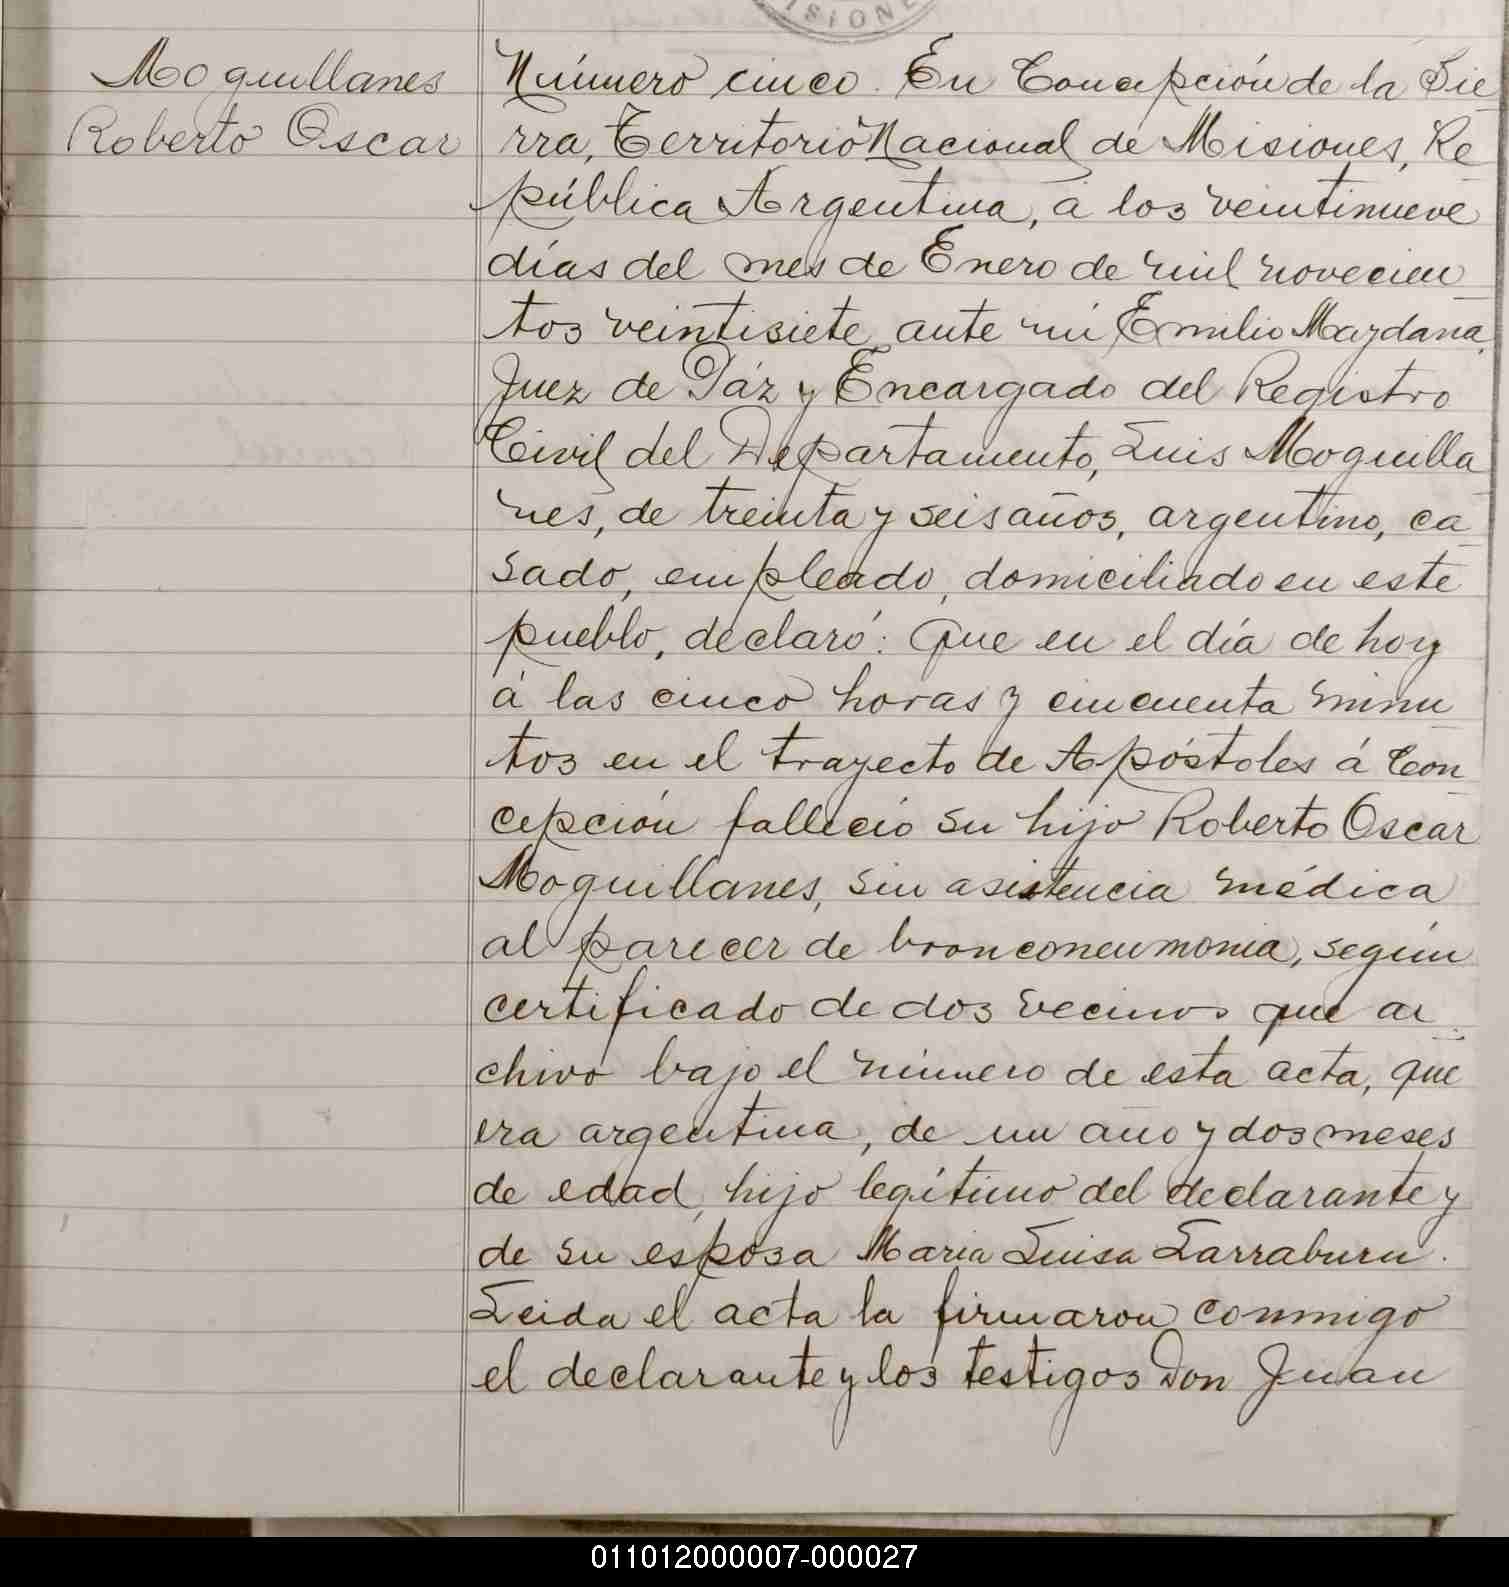 ISIONE
Moquillanes
Roberto Oscar
Número cinco. En Concepción de la Sie
rra, Territorio Nacional de Misiones, Re
pública Argentina, á los veintinueve
días del mes de Enero de mil novecien
tos veintisiete, ante mí Emilio Maydana,
Juez de Páz y Encargado del Registro
Civil del Departamento, Luis Moquilla
nes, de treinta y seis años, argentino, ca
sado, empleado, domiciliado en este
pueblo, declaró: Que en el día de hoy
á las cinco horas y cincuenta minu
tos en el trayecto de Apóstoles á Con
cepción falleció su hijo Roberto Oscar
Moquillanes, sin asistencia médica
al parecer de bronconeumonia, según
certificado de dos vecinos que ar
chivo bajo el número de esta acta, que
era argentina, de un año y dos meses
de edad, hijo legítimo del declarante y
de su esposa Maria Luisa Larraburu.
Leida el acta la firmaron conmigo
el declarante y los testigos Don Juan
011012000007-000027